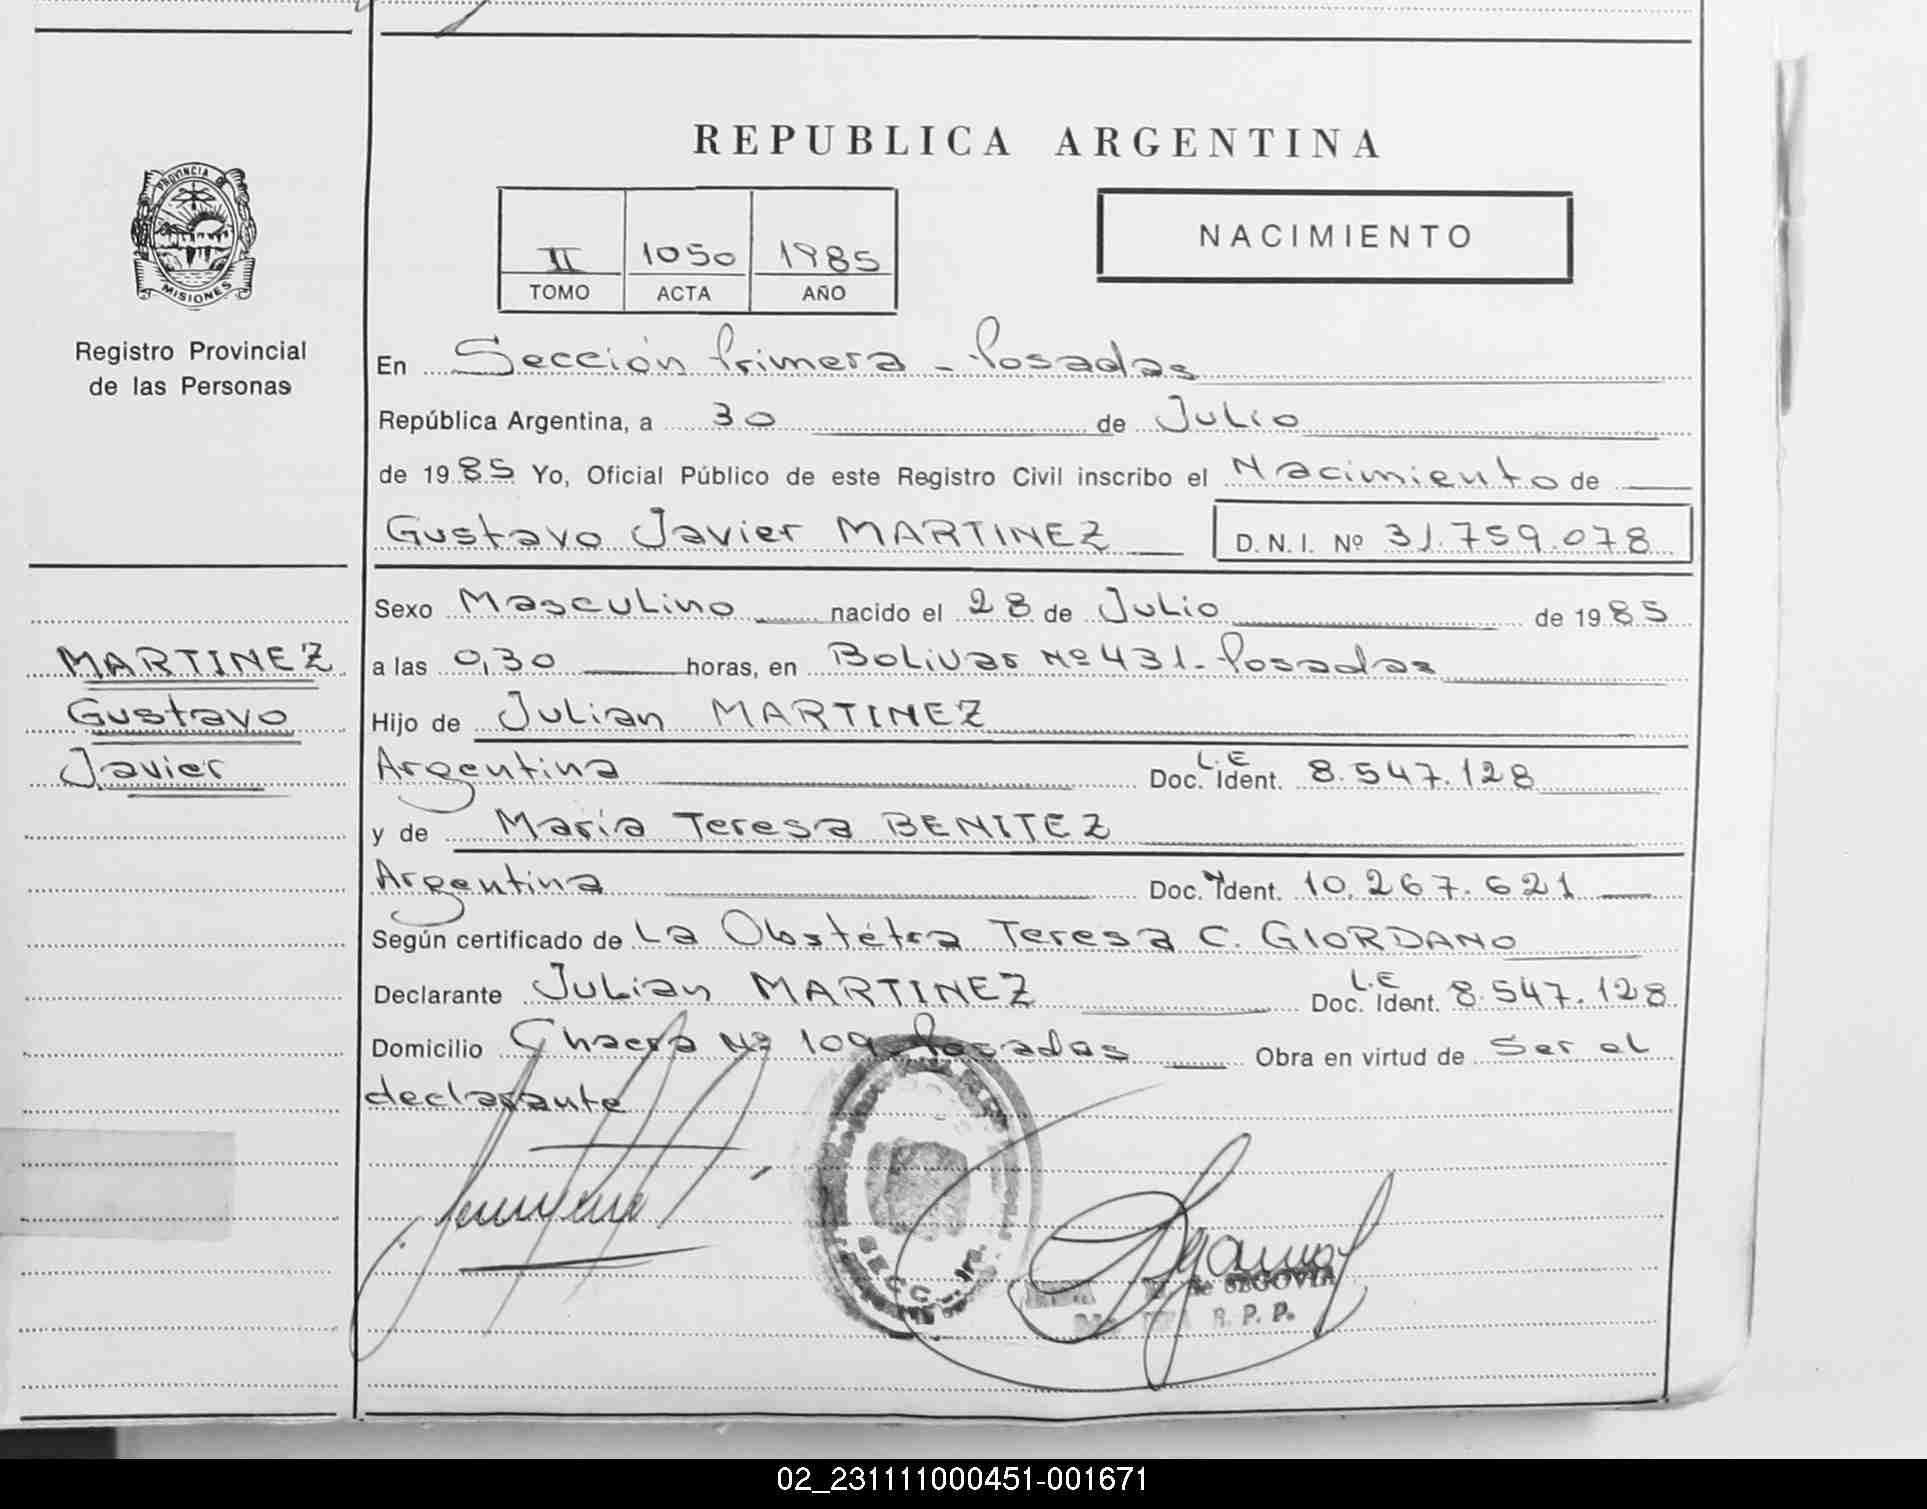 REPUBLICA ARGENTINA
PROVINCIA DE
MISIONES
Registro Provincial
de las Personas
II 1050 1985
TOMO ACTA AÑO
NACIMIENTO
En Sección Primera - Posadas
República Argentina, a 30 de Julio
de 1985 Yo, Oficial Público de este Registro Civil inscribo el Nacimiento de
Gustavo Javier MARTINEZ D.N.I. Nº 31.759.078
MARTINEZ
Gustavo
Javier
Sexo Masculino nacido el 28 de Julio de 1985
a las 0,30 horas, en Bolivar Nº 431 - Posadas
Hijo de Julian MARTINEZ
Argentina Doc. Ident. L.E 8.547.128
y de Maria Teresa BENITEZ
Argentina Doc. Ident. 10.267.621
Según certificado de La Obstétra Teresa C. GIORDANO
Declarante Julian MARTINEZ Doc. Ident. L.E 8.547.128
Domicilio Chacra Nº 109 Posadas Obra en virtud de Ser el
declarante
SECC. 1ra.
de SEGOVIA
R. P. P.
02_231111000451-001671